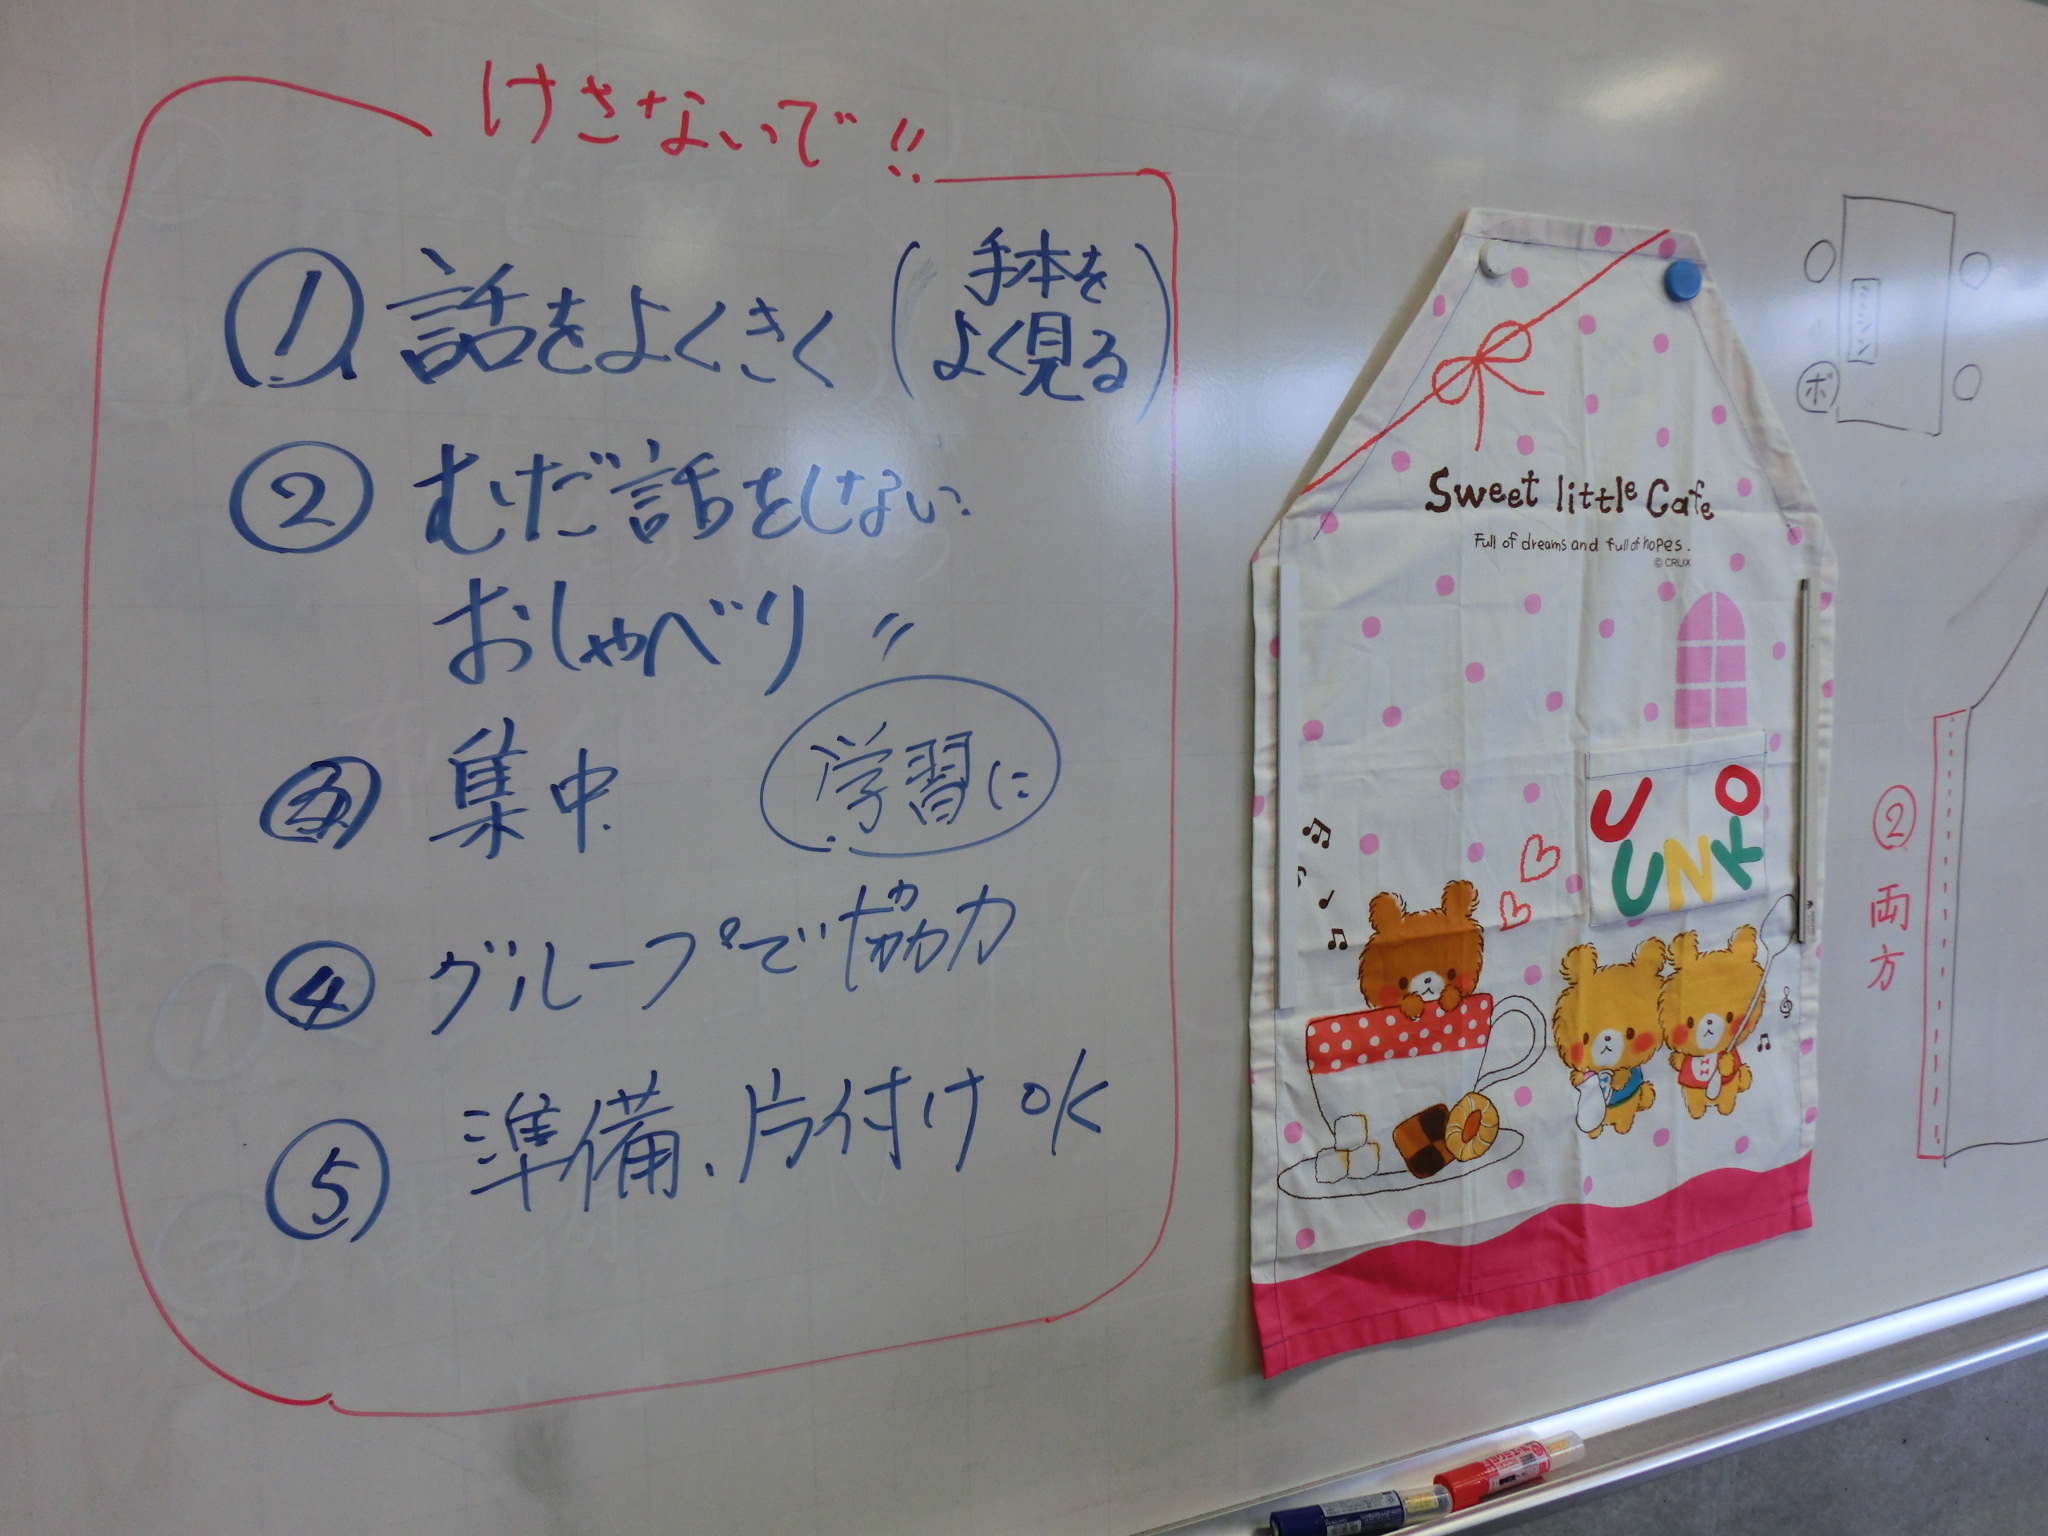 けさないで!!
① 話をよくきく (手本を
よく見る)
② むだ話をしない
おしゃべり 〃
③ 集中 学習に
④ グループで協力
⑤ 準備、片付けOK
Sweet little Cafe
Full of dreams and full of hopes.
© CRUX
U O
UNK
ボ
② 両方